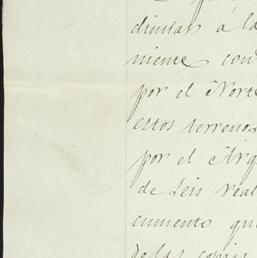 diuntas á la
miente con
por el Norte
estos terrenos
por el Arq
de Seis real
cumento qu
de las copias